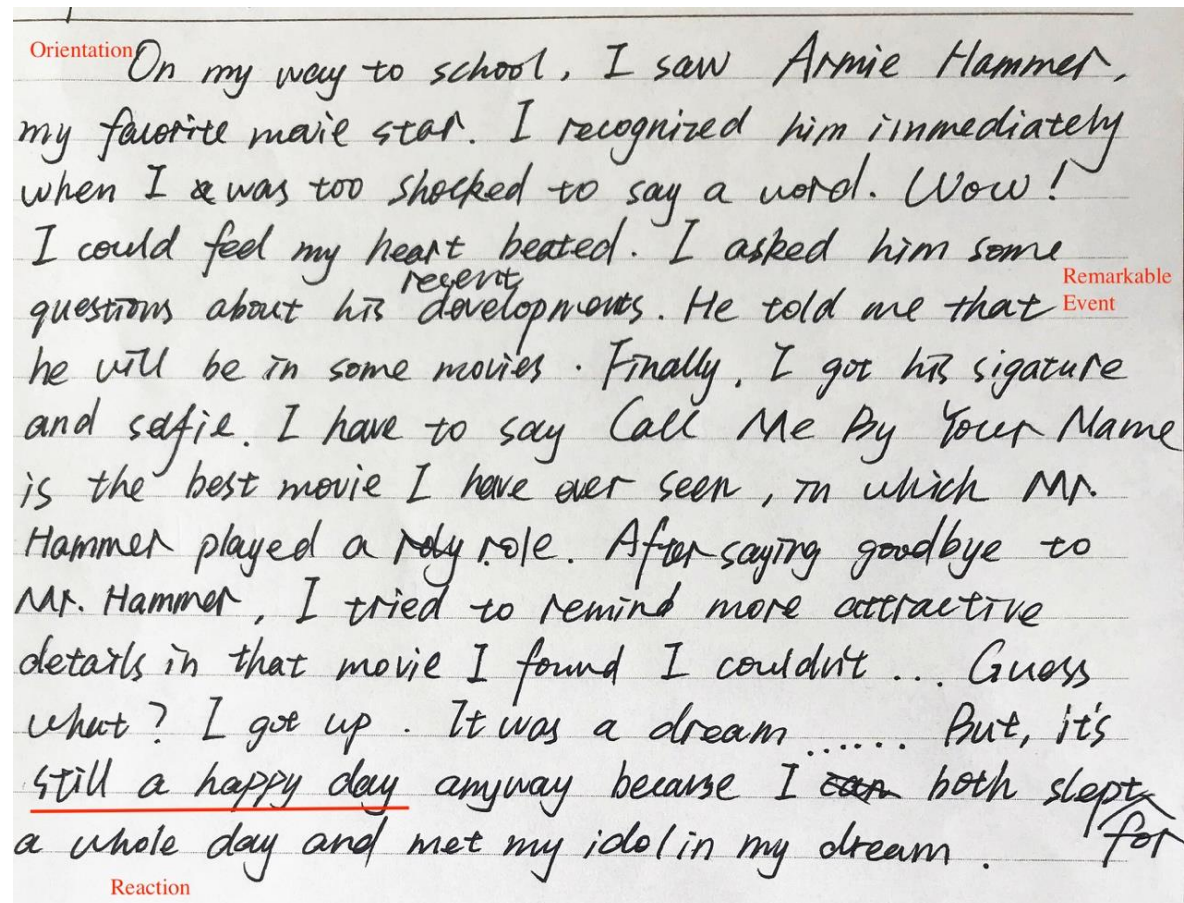 Orientation
On my way to school, I saw Armie Hammer,
my favorite movie star. I recognized him immediately
when I was too shocked to say a word. Wow!
I could feel my heart beated. I asked him some
recent
questions about his developments. He told me that
Remarkable
Event
he will be in some movies. Finally, I got his sigature
and selfie. I have to say Call Me By Your Name
is the best movie I have ever seen, in which Mr.
Hammer played a role. After saying goodbye to
Mr. Hammer, I tried to remind more attractive
details in that movie I found I couldn't ... Guess
what? I got up. It was a dream ...... But, it's
still a happy day anyway because I can both slept
for
a whole day and met my idol in my dream.
Reaction